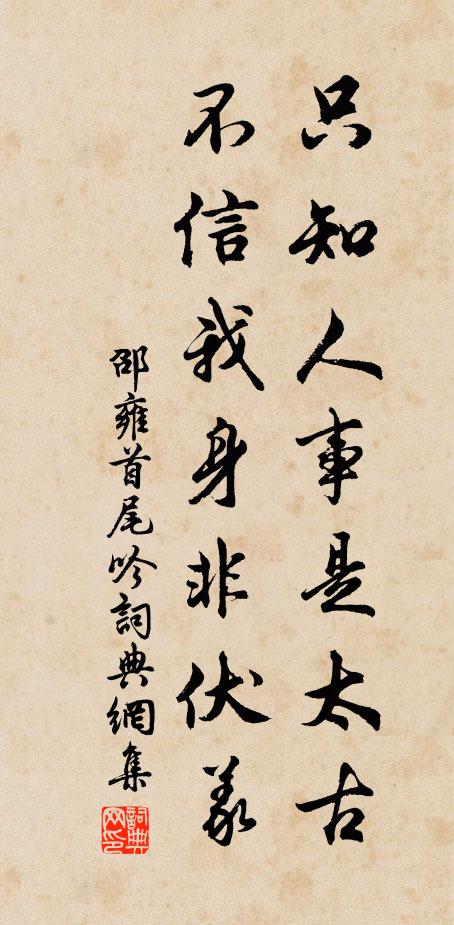 只知人事是太古
不信我身非伏羲
邵雍首尾吟詞典網集
詞典
网印